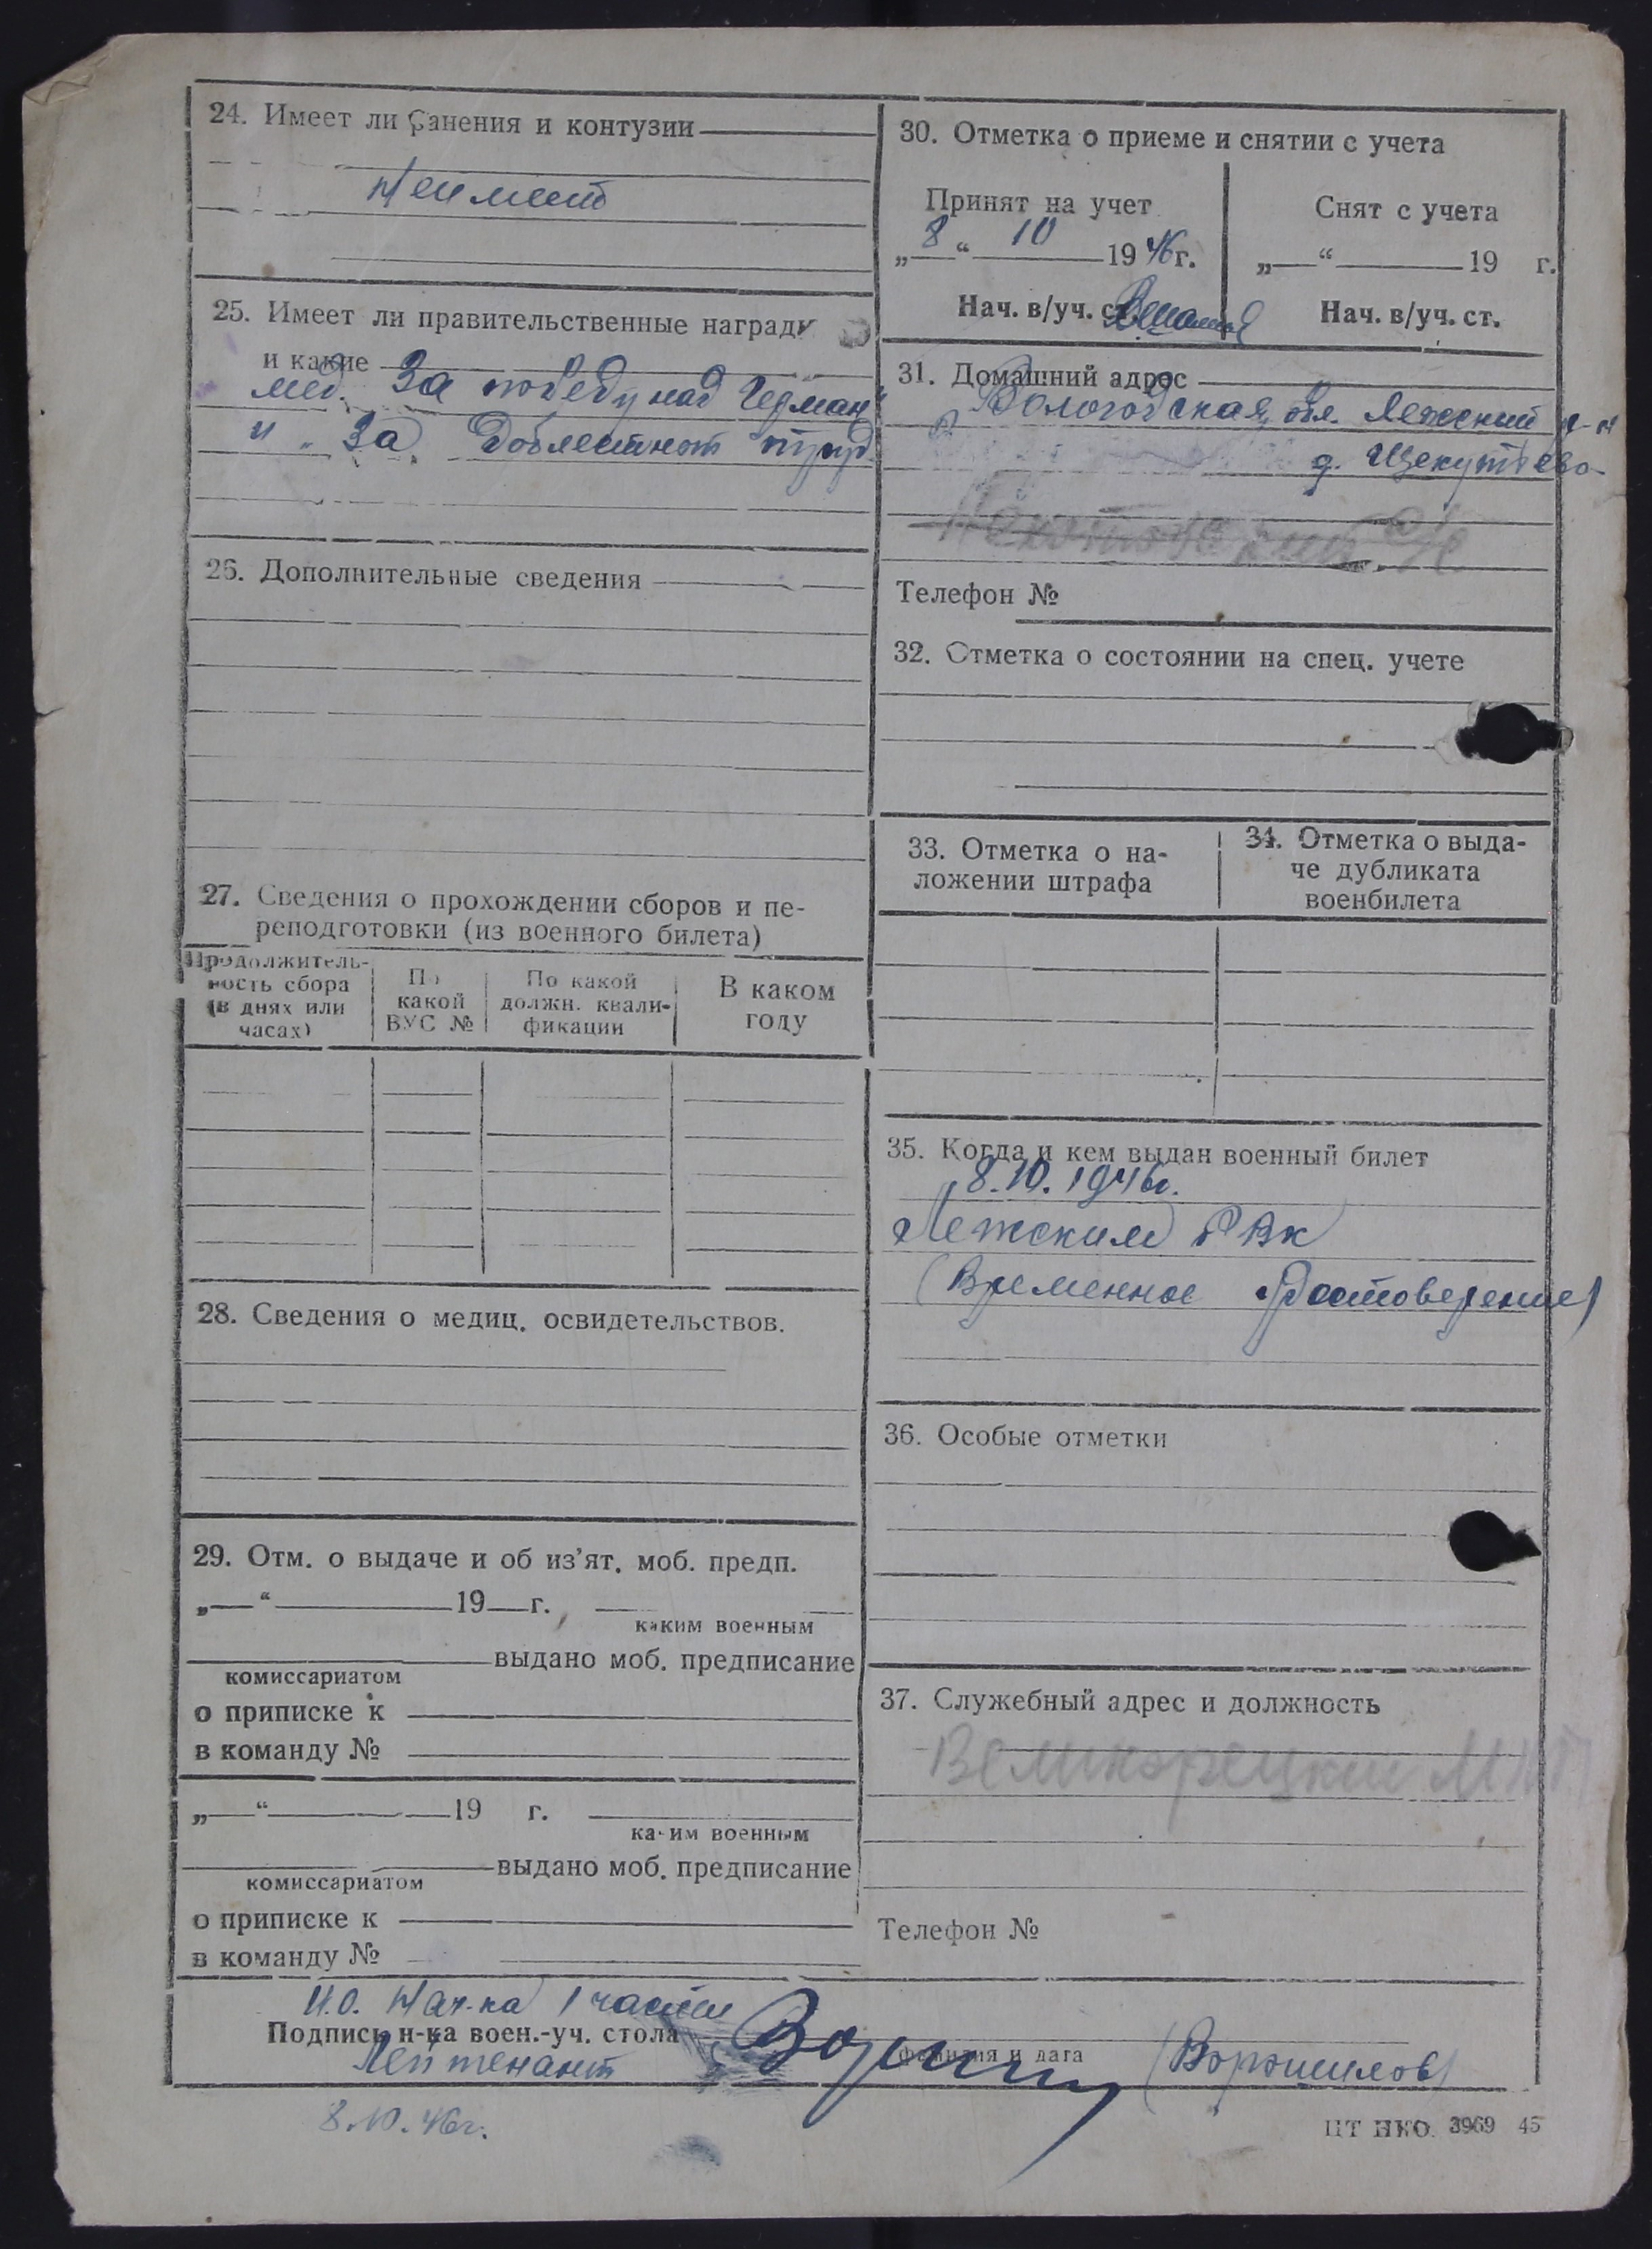 24. Имеет ли ранения и контузии
Не имеет
25. Имеет ли правительственные награды
и какие
мед. За победу над Герман"
и "За Доблестной труд
26. Дополнительные сведения
27. Сведения о прохождении сборов и пе-
реподготовки (из военного билета)
Продолжитель-
ность сбора
(в днях или
часах)
По
какой
ВУС №
По какой
должн. квали-
фикации
В каком
году
28. Сведения о медиц. освидетельствов.
29. Отм. о выдаче и об из’ят. моб. предп.
„ “ 19 г.
каким военным
выдано моб. предписание
комиссариатом
о приписке к
в команду №
„ “ 19 г.
каким военным
выдано моб. предписание
комиссариатом
о приписке к
в команду №
30. Отметка о приеме и снятии с учета
Принят на учет
„8“ 10 1946г.
Нач. в/уч. ст.
Снят с учета
„ “ 19 г.
Нач. в/уч. ст.
31. Домашний адрес
Вологодская обл. Лежский р-н
д. Щекутьево
Телефон №
32. Отметка о состоянии на спец. учете
33. Отметка о на-
ложении штрафа
34. Отметка о выда-
че дубликата
военбилета
35. Когда и кем выдан военный билет
8.10.1946г.
Лежским РВк
(Временное Удостоверение)
36. Особые отметки
37. Служебный адрес и должность
Великорецкий
Телефон №
И.О. Нач-ка 1 части
Подпись н-ка воен.-уч. стола
фамилия и дата
Лейтенант
(Ворошилов)
8.10.46г.
ЦТ НКО. 3969 45